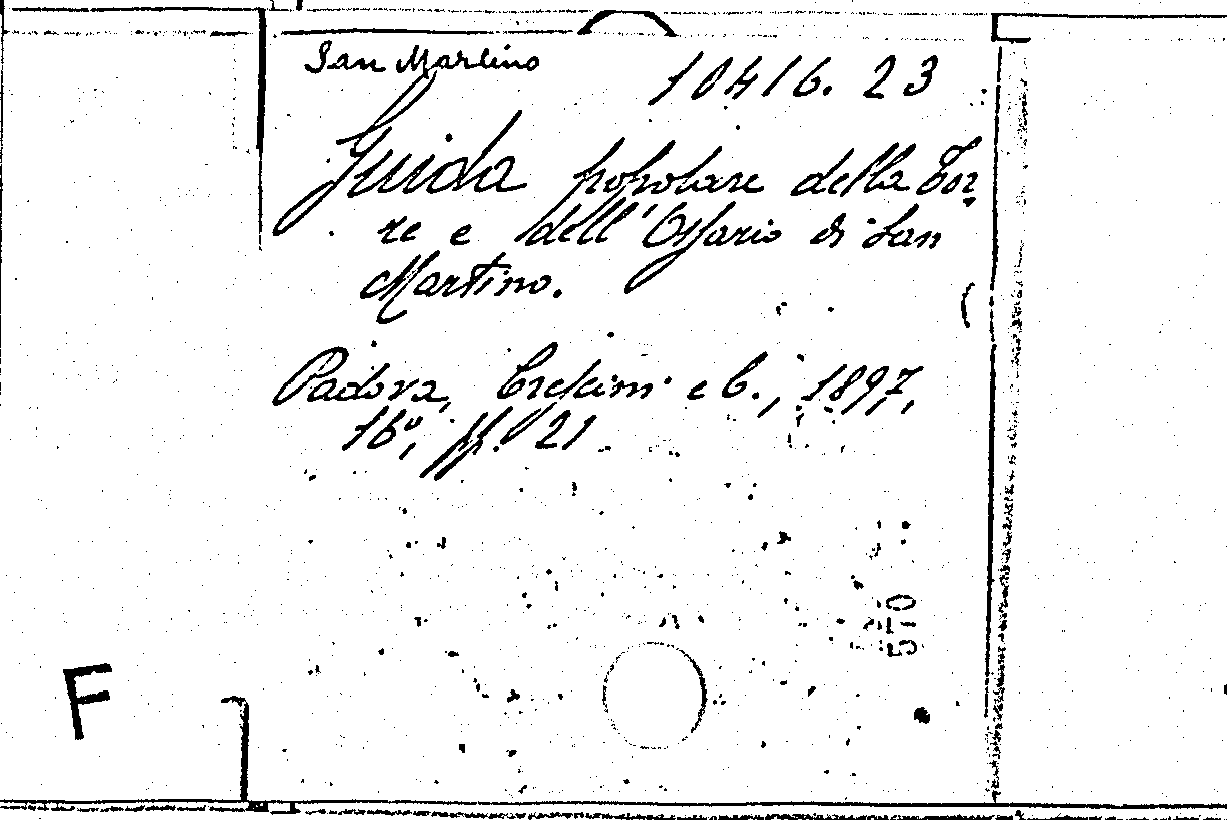 San Martino
10416. 23
Guida popolare della Tor-
re e dell'Ossario di San
Martino.
Padova, Crescini e C., 1897,
16º, pp. 21
570
F